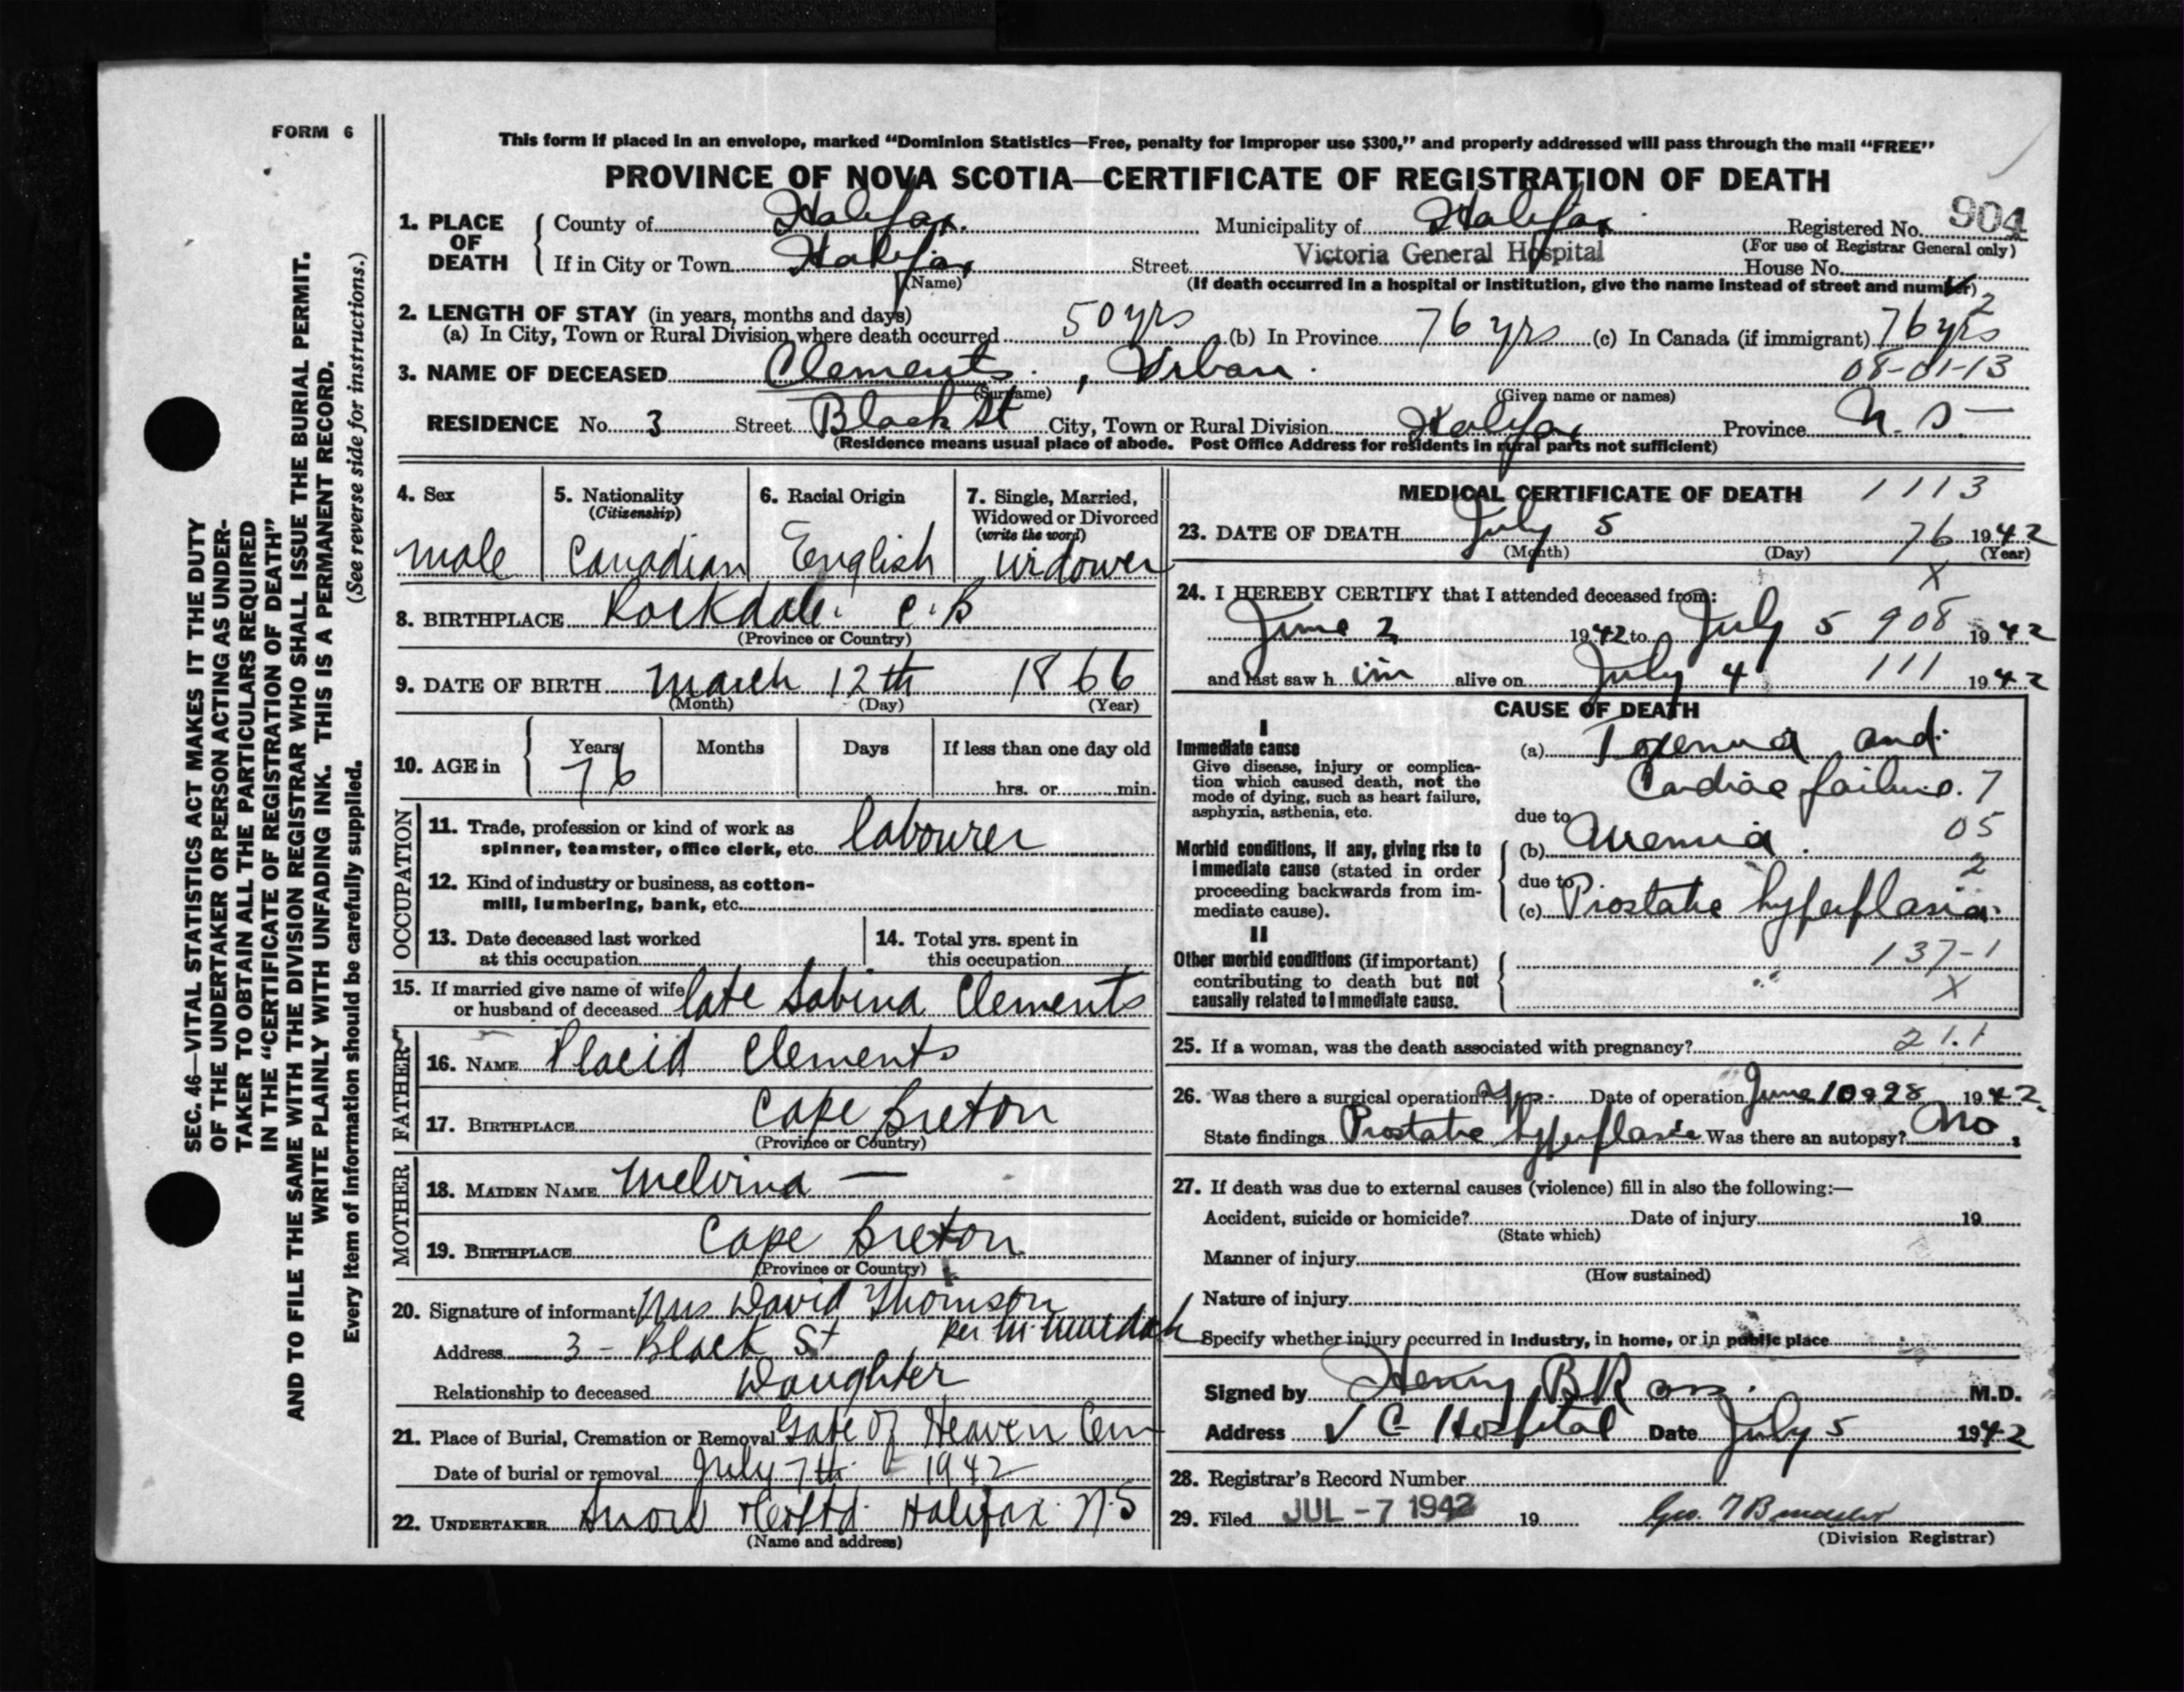 FORM 6
This form if placed in an envelope, marked “Dominion Statistics—Free, penalty for improper use $300,” and properly addressed will pass through the mail “FREE”
PROVINCE OF NOVA SCOTIA—CERTIFICATE OF REGISTRATION OF DEATH
1. PLACE OF DEATH County of Halifax. Municipality of Halifax Registered No. 904
(For use of Registrar General only)
If in City or Town Halifax Street Victoria General Hospital House No.
(Name) (If death occurred in a hospital or institution, give the name instead of street and number)
2
2. LENGTH OF STAY (in years, months and days)
(a) In City, Town or Rural Division where death occurred 50 yrs (b) In Province 76 yrs (c) In Canada (if immigrant) 76 yrs
3. NAME OF DECEASED Clements, Urban. 08-01-13
(Surname) (Given name or names)
RESIDENCE No. 3 Street Black St City, Town or Rural Division Halifax Province N. S.
(Residence means usual place of abode. Post Office Address for residents in rural parts not sufficient)
4. Sex
male
5. Nationality
(Citizenship)
Canadian
6. Racial Origin
English
7. Single, Married,
Widowed or Divorced
(write the word)
widower
8. BIRTHPLACE Rockdale C.B
(Province or Country)
9. DATE OF BIRTH March 12th 1866
(Month) (Day) (Year)
10. AGE in Years Months Days If less than one day old
76 hrs. or min.
OCCUPATION
11. Trade, profession or kind of work as
spinner, teamster, office clerk, etc. labourer
12. Kind of industry or business, as cotton-
mill, lumbering, bank, etc.
13. Date deceased last worked
at this occupation
14. Total yrs. spent in
this occupation
15. If married give name of wife
or husband of deceased late Sabina Clements
FATHER
16. NAME Placid Clements
17. BIRTHPLACE Cape Breton
(Province or Country)
MOTHER
18. MAIDEN NAME Melvina —
19. BIRTHPLACE Cape Breton
(Province or Country)
20. Signature of informant Mrs David Thomson
per M. Murdoch
Address 3 - Black St
Relationship to deceased Daughter
21. Place of Burial, Cremation or Removal Gate of Heaven Cem
Date of burial or removal July 7th 1942
22. UNDERTAKER Snow & Co Ltd Halifax N.S
(Name and address)
MEDICAL CERTIFICATE OF DEATH 1113
23. DATE OF DEATH July 5 76 1942
(Month) (Day) (Year)
X
24. I HEREBY CERTIFY that I attended deceased from:
June 2 1942 to July 5 908 1942
and last saw h im alive on July 4 111 1942
CAUSE OF DEATH
I
Immediate cause
Give disease, injury or complica-
tion which caused death, not the
mode of dying, such as heart failure,
asphyxia, asthenia, etc.
(a) Toxemia and
Cardiac failure. 7
due to 05
Morbid conditions, if any, giving rise to
immediate cause (stated in order
proceeding backwards from im-
mediate cause).
(b) Uremia.
due to 2
(c) Prostatic hyperplasia.
II
Other morbid conditions (if important)
contributing to death but not
causally related to immediate cause.
137-1
X
25. If a woman, was the death associated with pregnancy? 21.1
26. Was there a surgical operation? Yes. Date of operation June 10 & 28 1942.
State findings Prostatic hyperplasia Was there an autopsy? No.
27. If death was due to external causes (violence) fill in also the following:—
Accident, suicide or homicide? Date of injury 19
(State which)
Manner of injury
(How sustained)
Nature of injury
Specify whether injury occurred in industry, in home, or in public place
Signed by Henry B Ross. M.D.
Address V G Hospital Date July 5 1942
28. Registrar's Record Number
29. Filed JUL -7 1942 19 Geo.
(Division Registrar)
SEC. 46—VITAL STATISTICS ACT MAKES IT THE DUTY
OF THE UNDERTAKER OR PERSON ACTING AS UNDER-
TAKER TO OBTAIN ALL THE PARTICULARS REQUIRED
IN THE “CERTIFICATE OF REGISTRATION OF DEATH”
AND TO FILE THE SAME WITH THE DIVISION REGISTRAR WHO SHALL ISSUE THE BURIAL PERMIT.
WRITE PLAINLY WITH UNFADING INK. THIS IS A PERMANENT RECORD.
Every item of information should be carefully supplied. (See reverse side for instructions.)